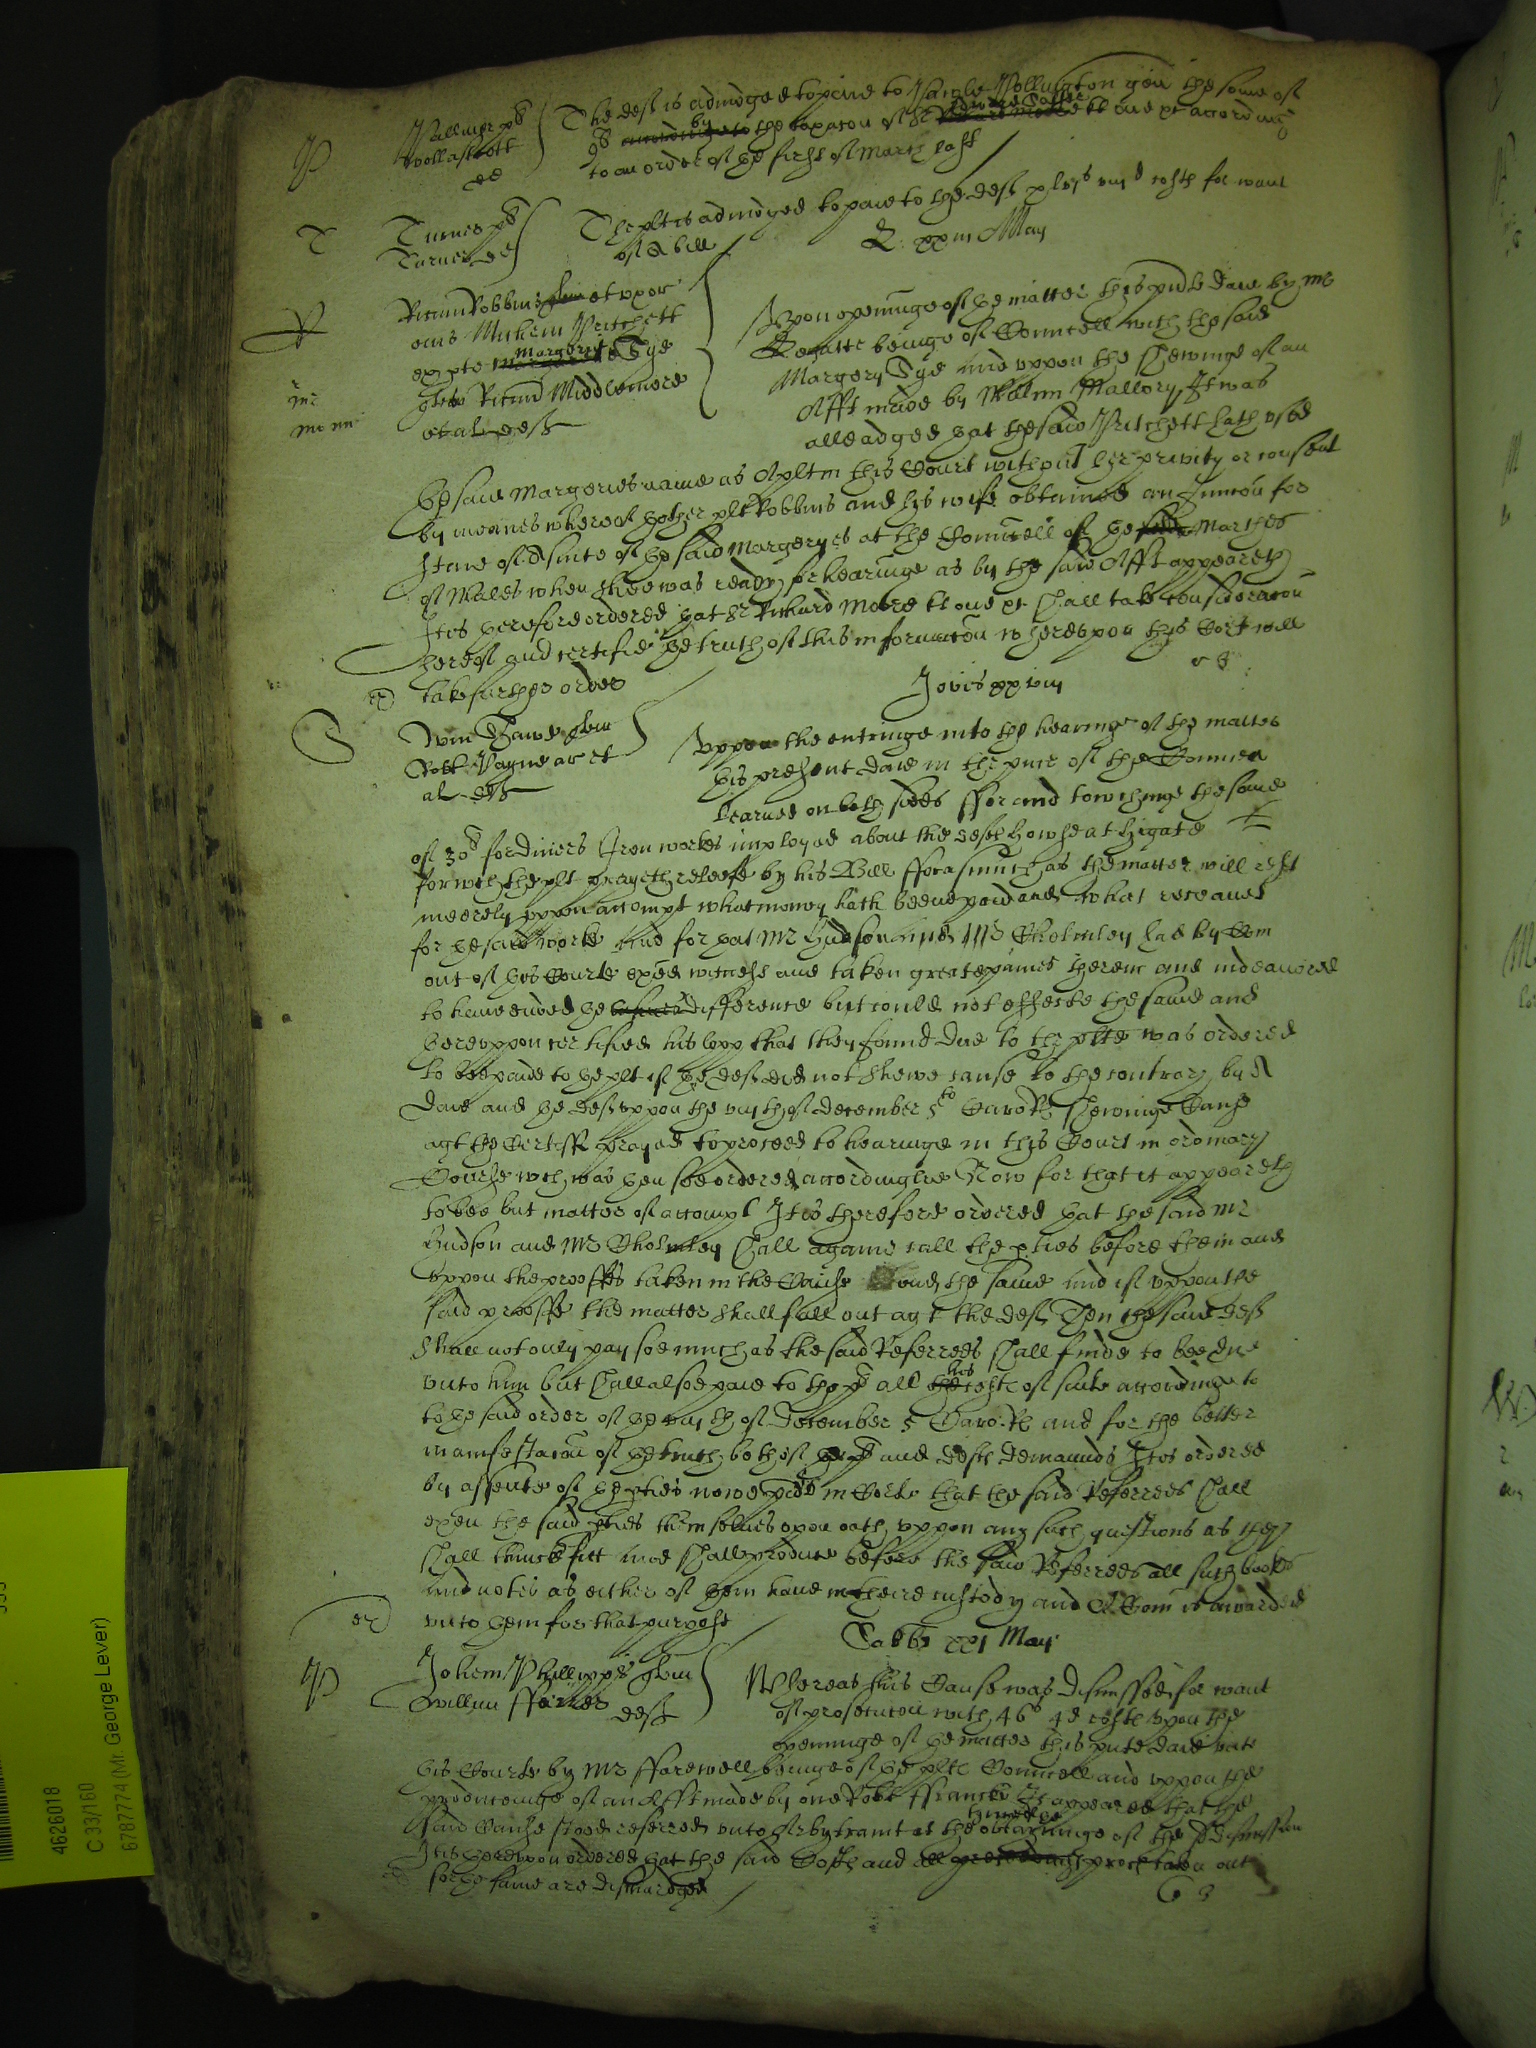 P
Palmer pl
Wollascott
de
The deft is adiudged to paie to Pollington gen the some of
by the taxacon of Sr Edward Salter kt one &c according
to an order of the first of March last
T
Turner pl
Turner de
The plt is adiudged to paie to the deft costs for want
of A bill
R xxiii May
R
Ricum Robbins et uxor
eius Michem Pritchett
ex pte Margerie Tye
quer Ricum Middlemore
et al defts
Vpon openinge of the matter this pnte daie by Mr
beinge of Councell with the said
Margery Tye and vppon the shewinge of an
Afft made by Willm Mallory It was
alleadged that the said Pritchett hath vsed
the said Margeries name as A plt in this Court without her privity or consent
by meanes whereof thother plt Robbins and his wife obteined an Iniunccon for
staie of A suite of the said Margeryes at the Councell of the Marches
of Wales when shee was ready for hearinge as by the said Afft appeareth
It is therefore ordered that Sr Richard Moore kt one &c shall take consideracon
thereof and certifie the truth of this informacon wherevpon this Cort will
take further order
Jovis xxviii
S
quer
Robt Payne ar et
al defts
Vppon the entringe into the hearinge of the matter
this present daie in the pnce of the Councell
learned on both sides ffor and towchinge the some
of 30 for divers Iron workes imployed about the defts howse at Higate
for wch the plt prayeth releefe by his Bill fforasmuch as the matter will rest
meerely vppon accompt what money hath beene paid and what receaued
for the said worke And for that Mr Hudson and Mr Cholmley had by Com
out of this Courte exed witnesses and taken greate paines therein and indeauored
to haue ended the difference but could not effecte the same and
therevppon certified his lopp that they found due to the plte was ordered
to bee paide to the plt if the deft did not shewe cause to the contrary by A
daie and the deft vppon the of December 5to Caro Rs shewinge Cause
agt the Certiff prayed to proceed to hearinge in this Court in ordinary
Course wch was then soe ordered accordinglie Now for that it appeareth
to bee but matter of accompt It is therefore ordered that the said Mr
Hudson and Mr Cholmley shall againe call the pties before them and
vppon the prooffes taken in the Cause end the same And if vppon the
said prooffe the matter shall fall out agt the deft Then the said deft
shall not only pay soe much as the said Referrees shall finde to bee due
vnto him but shall alsoe paie to the pl all his costs of suite accordinge to
to the said order of the of December 5 Caro Rs and for the better
manifestacon of the truth both of the pl and defts demaunds It is ordered
by assente of the pties nowe pnte in Corte that the said Referrees shall
exen the said pties themselues vpon oath vppon any such questions as they
shall thincke fitt And shall produce before the said Referrees all such bookes
And notes as either of them haue in theire custody and A Com is awarded
vnto them for that purpose
Sabbti xxi May
P
Johem Phillipps quer
Willum ffarker deft
Whereas this Cause was dismissed for want
of prosecucon with 46s 4d costs vpon the
openinge of the matter this pnte daie vnto
this Courte by Mr ffarewell beinge of the plts Councell and vppon the
producinge of an Afft made by one Robt ffrancis It appeared that the
said Cause stood referred vnto Arbytramt at the tyme of the obtayninge of the sd dismission
It is therevpon ordered that the said Costs and all process taken out
for the same are discharged
4626018
C 33/160
6787774 (Mr. George Lever)